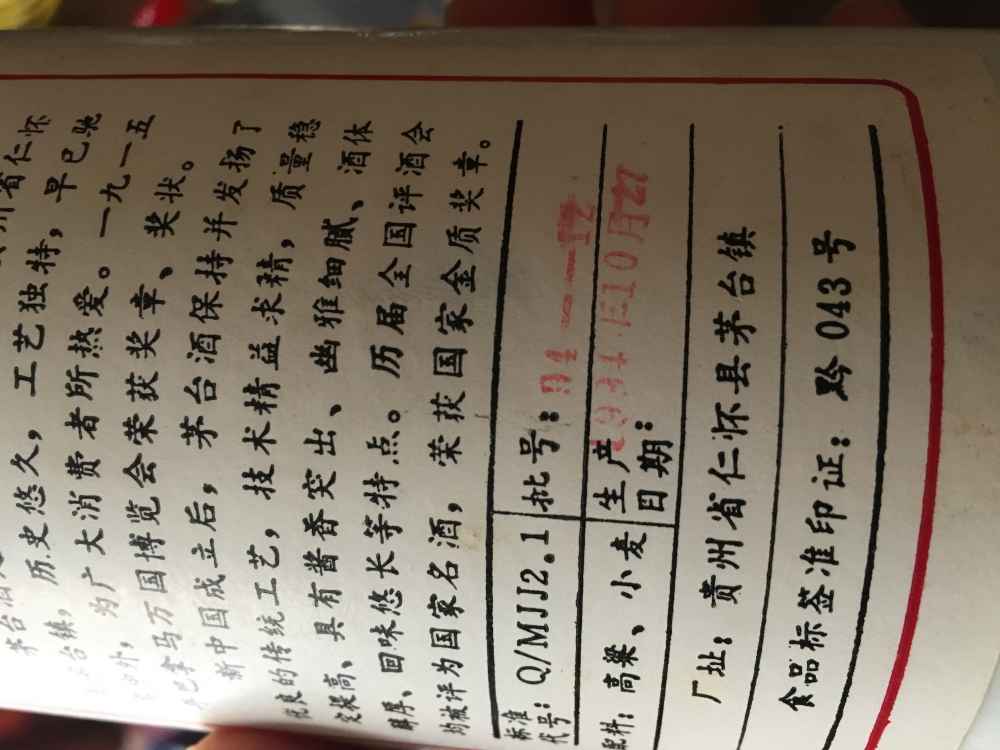 茅台酒
州省仁怀
台镇，历史悠久，工艺独特，早已驰
外，为广大消费者所热爱。一九一五
巴拿马万国博览会荣获奖章、奖状。
新中国成立后，茅台酒保持并发扬了
优良的传统工艺，技术精益求精，质量稳
定提高、具有酱香突出、幽雅细腻、酒体
醇厚、回味悠长等特点。历届全国评酒会
均被评为国家名酒，荣获国家金质奖章。
标准代号：Q/MJJ2.1 批号：94
配料：高粱、小麦 生产日期：1994年10月27
厂址：贵州省仁怀县茅台镇
食品标签准印证：黔043号